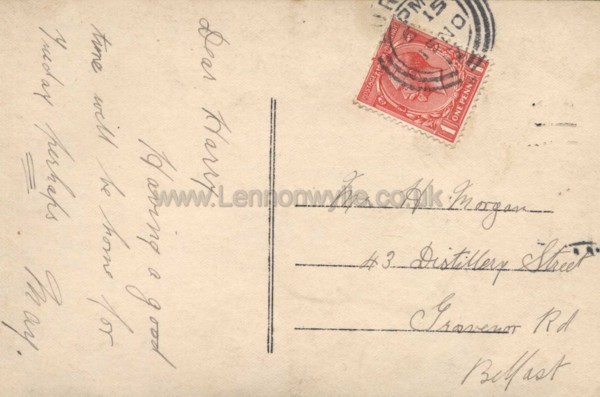 Dear Harry
Having a good
time will be home for
Tuesday perhaps
May.
ONE PENNY
1
www.Lennonwylie.co.uk
H. Morgan
43 Distillery Street
Grovenor Rd
Belfast